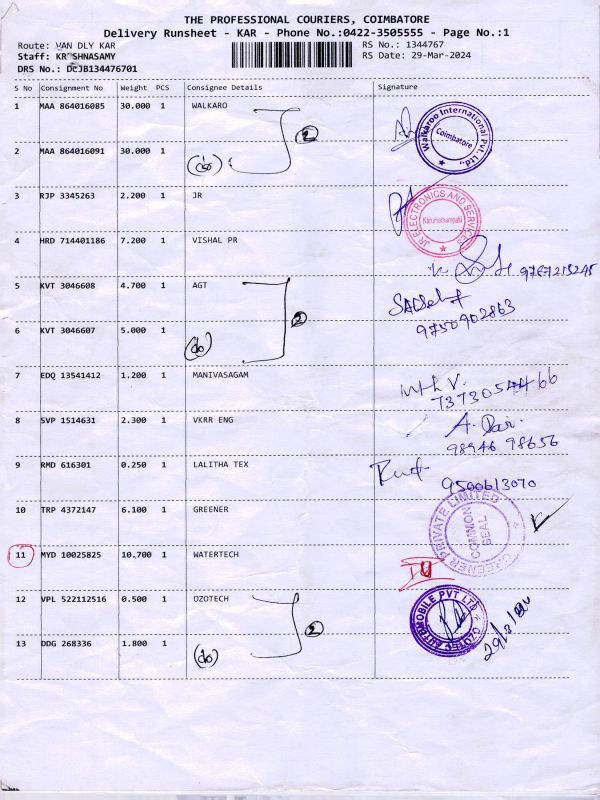 THE PROFESSIONAL COURIERS, COIMBATORE
Delivery Runsheet - KAR - Phone No.:0422-3505555 - Page No.:1
Route: VAN DLY KAR RS No.: 1344767
Staff: KRISHNASAMY RS Date: 29-Mar-2024
DRS No.: DCJB134476701
S No Consignment No Weight PCS Consignee Details Signature
1 MAA 864016085 30.000 1 WALKARO
Walkaroo International Pvt. Ltd.,
Coimbatore
2
2 MAA 864016091 30.000 1
3 RJP 3345263 2.200 1 JR
JR ELECTRONICS AND SERVICES
Karumathampatti
4 HRD 714401186 7.200 1 VISHAL PR
9767213245
5 KVT 3046608 4.700 1 AGT
2
9750902863
6 KVT 3046607 5.000 1
7 EDQ 13541412 1.200 1 MANIVASAGAM
8 SVP 1514631 2.300 1 VKRR ENG
98946 98656
9 RMD 616301 0.250 1 LALITHA TEX
9500613070
10 TRP 4372147 6.100 1 GREENER
GREENER PRIVATE LIMITED
COMMON
SEAL
11 MYD 10025825 10.700 1 WATERTECH
12 VPL 522112516 0.500 1 OZOTECH
2
AUTOMOBILE PVT LTD
13 DDG 268336 1.800 1